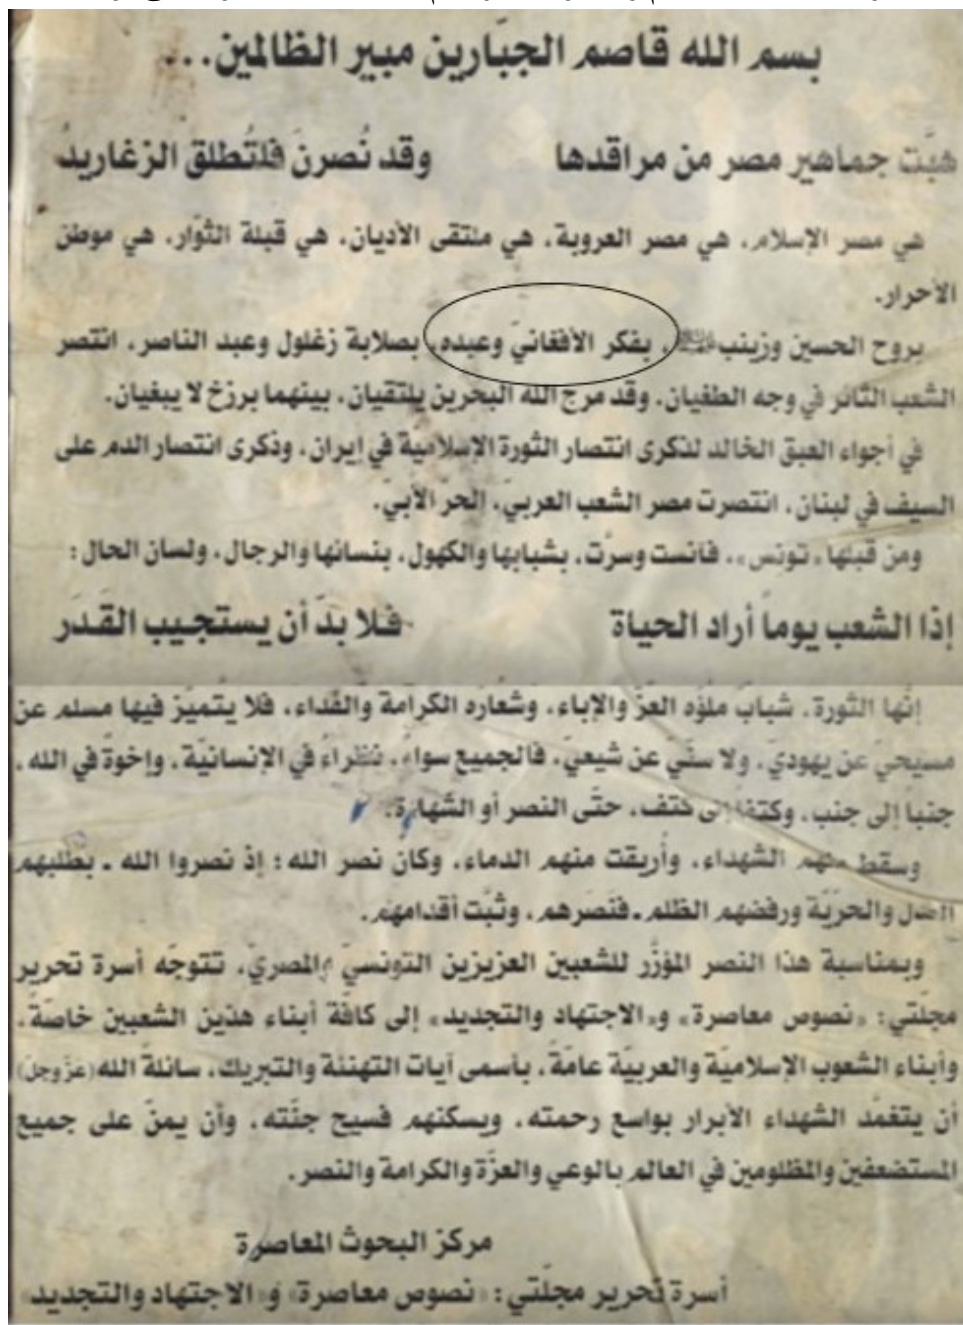 بسم الله قاصم الجبّارين مبير الظالمين...
هبّت جماهير مصر من مراقدها وقد نُصرنَ فلتُطلق الزغاريدُ
هي مصر الإسلام، هي مصر العروبة، هي ملتقى الأديان، هي قبلة الثوّار، هي موطن
الأحرار.
بروح الحسين وزينب، بفكر الأفغانيّ وعبده، بصلابة زغلول وعبد الناصر، انتصر
الشعب الثائر في وجه الطغيان، وقد مرج الله البحرين يلتقيان، بينهما برزخ لا يبغيان.
في أجواء العبق الخالد لذكرى انتصار الثورة الإسلامية في إيران، وذكرى انتصار الدم على
السيف في لبنان، انتصرت مصر الشعب العربيّ، الحرّ الأبيّ.
ومن قبلها «تونس»، فآنست وسرّت، بشبابها والكهول، بنسائها والرجال، ولسان الحال:
إذا الشعب يوماً أراد الحياة فلا بدّ أن يستجيب القَدَر
إنّها الثورة، شبابٌ ملؤه العزّ والإباء، وشعاره الكرامة والفداء، فلا يتميّز فيها مسلم عن
مسيحيّ عن يهوديّ، ولا سنّي عن شيعيّ، فالجميع سواءٌ، نظراءٌ في الإنسانيّة، وإخوةٌ في الله،
جنباً إلى جنب، وكتفاً إلى كتف، حتّى النصر أو الشهادة.
وسقط منهم الشهداء، وأريقت منهم الدماء، وكان نصر الله؛ إذ نصروا الله ـ بطلبهم
العدل والحرّيّة ورفضهم الظلم ـ فنَصَرهم، وثبّت أقدامهم.
وبمناسبة هذا النصر المؤزّر للشعبين العزيزين التونسيّ والمصريّ، تتوجّه أسرة تحرير
مجلّتي: «نصوص معاصرة» و«الاجتهاد والتجديد» إلى كافّة أبناء هذين الشعبين خاصّةً،
وأبناء الشعوب الإسلاميّة والعربيّة عامّةً، بأسمى آيات التهنئة والتبريك، سائلةً الله (عزّ وجلّ)
أن يتغمّد الشهداء الأبرار بواسع رحمته، ويسكنهم فسيح جنّته، وأن يمنّ على جميع
المستضعفين والمظلومين في العالم بالوعي والعزّة والكرامة والنصر.
مركز البحوث المعاصرة
أسرة تحرير مجلّتي: «نصوص معاصرة» و«الاجتهاد والتجديد»